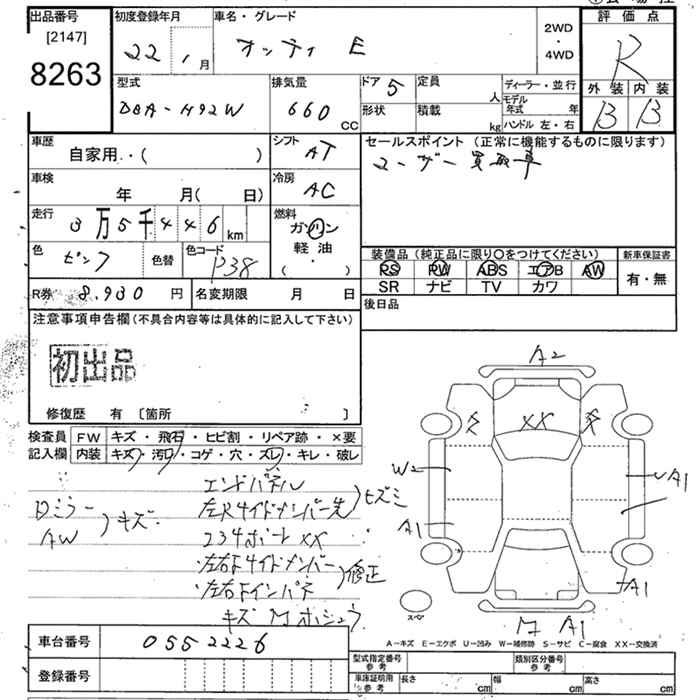 出品番号
[2147]
8263
初度登録年月
22年1月
車名・グレード
オッティ E
2WD
・
4WD
評価点
R
外装 内装
B B
型式
DBA-H92W
排気量
660 CC
ドア 5
形状
定員 人
積載 kg
ディーラー・並行
モデル年式 年
ハンドル 左・右
車歴
自家用・・( )
シフト AT
セールスポイント (正常に機能するものに限ります)
ユーザー買取車
車検
年 月( 日)
冷房 AC
走行
3万5千446 km
燃料
ガソリン
・
軽油
( )
色 ピンク
色替
色コード P38
装備品 (純正品に限り○をつけてください)
PS PW ABS エアB AW
SR ナビ TV カワ
新車保証書
有・無
R券 8,930 円
名変期限 月 日
後日品
注意事項申告欄(不具合内容等は具体的に記入して下さい)
初出品
修復歴 有 [箇所 ]
検査員 FW キズ・飛石・ヒビ割・リペア跡・×要
記入欄 内装 キズ・汚レ・コゲ・穴・スレ・キレ・破レ
エンドパネル
左右サイドメンバー先 ヒズミ
ミラー
AW
キズ
左右Fサイドメンバー
左右Fインパネ
修正
A2
XX
W2
A1
A1
A1
スペア
A1
A-キズ E-エクボ U-凹み W-補修跡 S-サビ C-腐食 XX-交換済
車台番号 0552226
登録番号
型式指定番号 参考
類別区分番号 参考
車庫証明用 参考 長さ cm 幅 cm 高さ cm